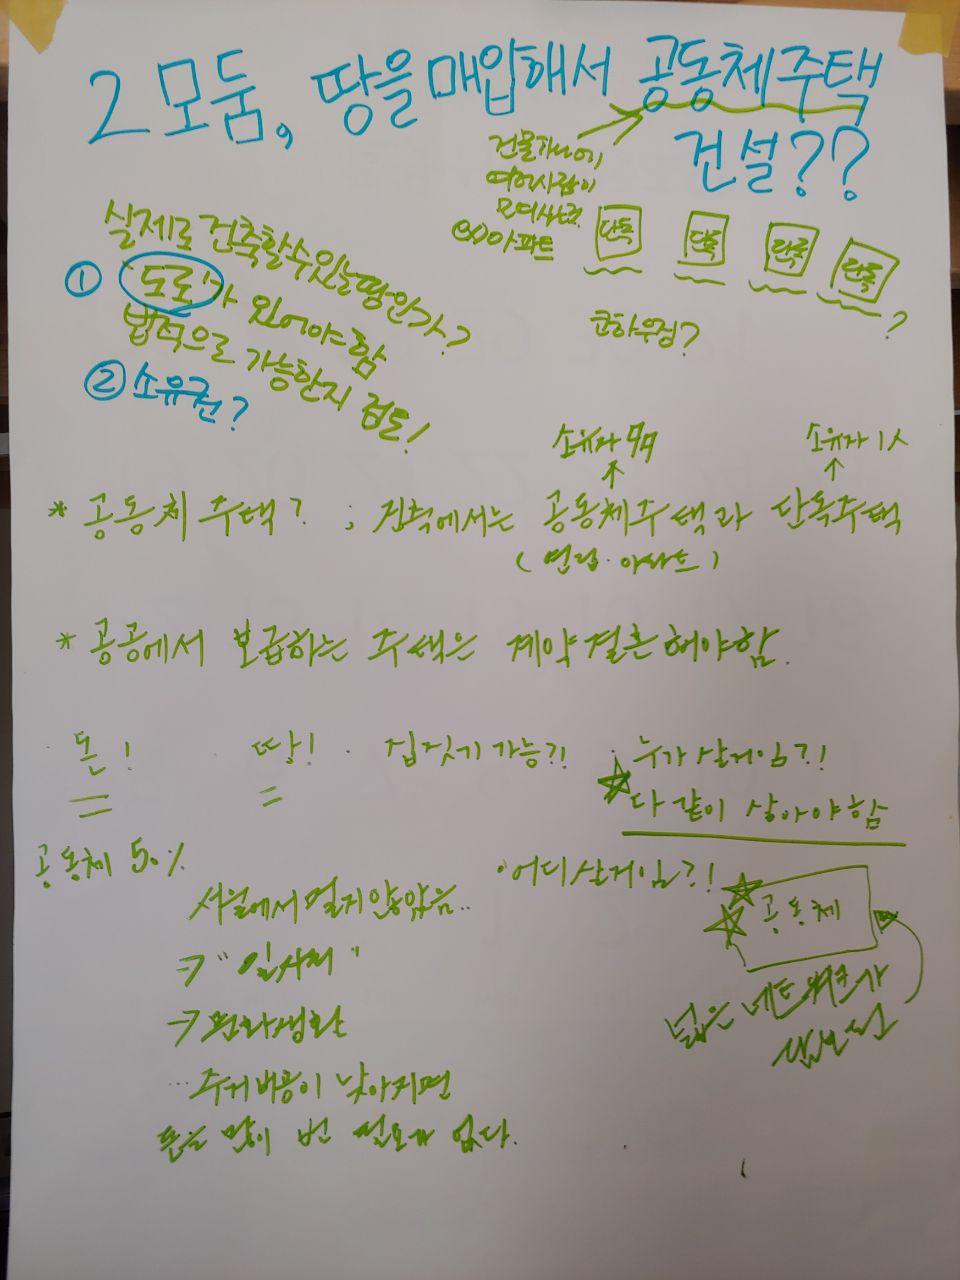 2모둠, 땅을 매입해서 공동체주택
건설??
건물하나에
여러사람이
모여사는것.
ex)아파트
단독 단독 단독 단독 ?
실제로 건축할수있는땅인가?
① "도로"가 있어야함
법적으로 가능한지 검토!
② 소유권?
소유자 여러
소유자 1人
* 공동체 주택? ; 건축에서는 공동체주택과 단독주택
(연립·아파트)
* 공공에서 보급하는 주택은 계약결혼해야함.
· 돈! · 땅! · 집짓기 가능?! · 누가 살거임?!
다 같이 살아야함
공동체 50%
· 어디살거임?!
서울에서 멀지 않았음..
공동체
→ "일자리"
넓은 네트워크가
→ 문화생활
… 주거비용이 낮아지면
돈을 많이 번 필요가 없다.